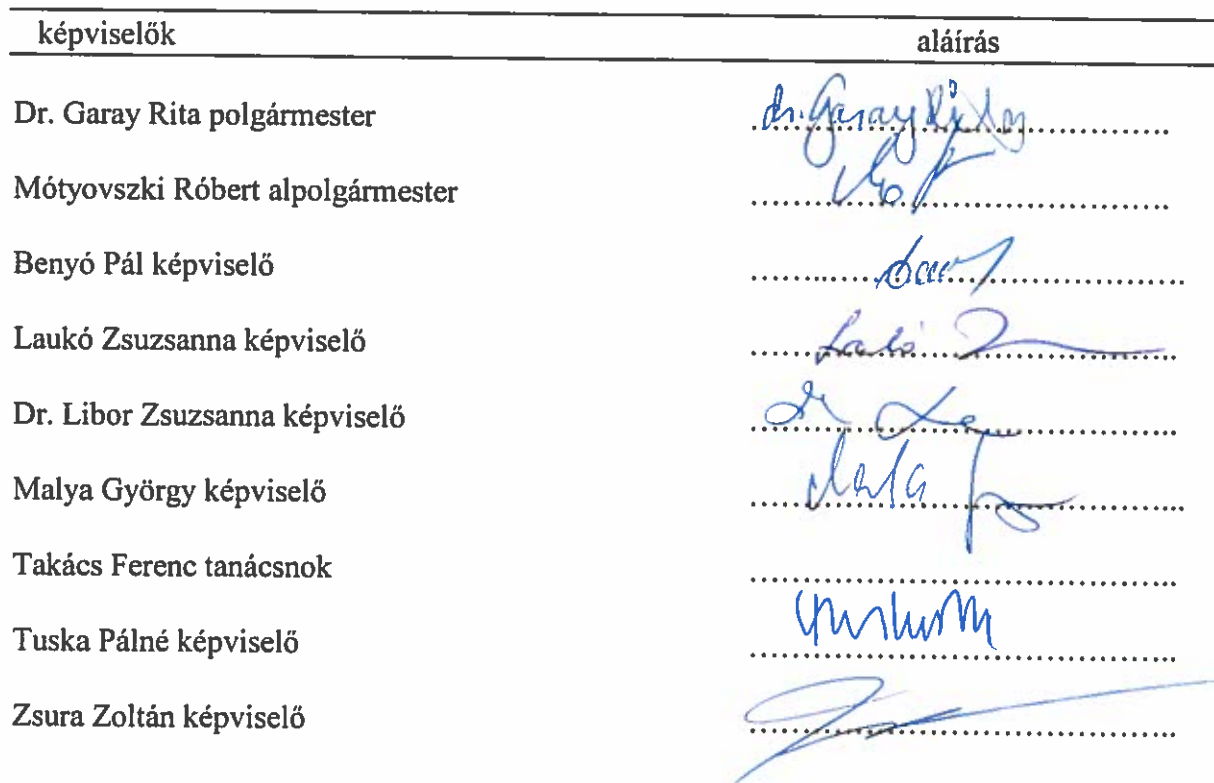 képviselők aláírás
Dr. Garay Rita polgármester dr. Garay Rita
Mótyovszki Róbert alpolgármester
Benyó Pál képviselő
Laukó Zsuzsanna képviselő
Dr. Libor Zsuzsanna képviselő
Malya György képviselő
Takács Ferenc tanácsnok
Tuska Pálné képviselő
Zsura Zoltán képviselő